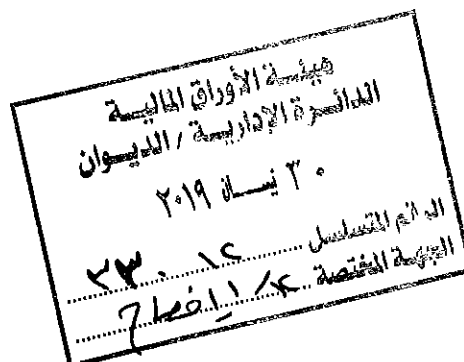 هيئة الأوراق المالية
الدائرة الإدارية / الديوان
٣٠ نيسان ٢٠١٩
الرقم المتسلسل
الجهة المختصة ١/٤ إفصاح